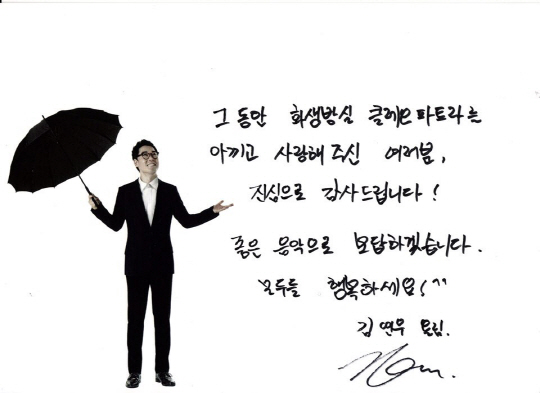 그동안 화생방실 클레오파트라를
아끼고 사랑해 주신 여러분,
진심으로 감사드립니다!
좋은 음악으로 보답하겠습니다.
모두들 행복하세요!^^
김연우 올림.